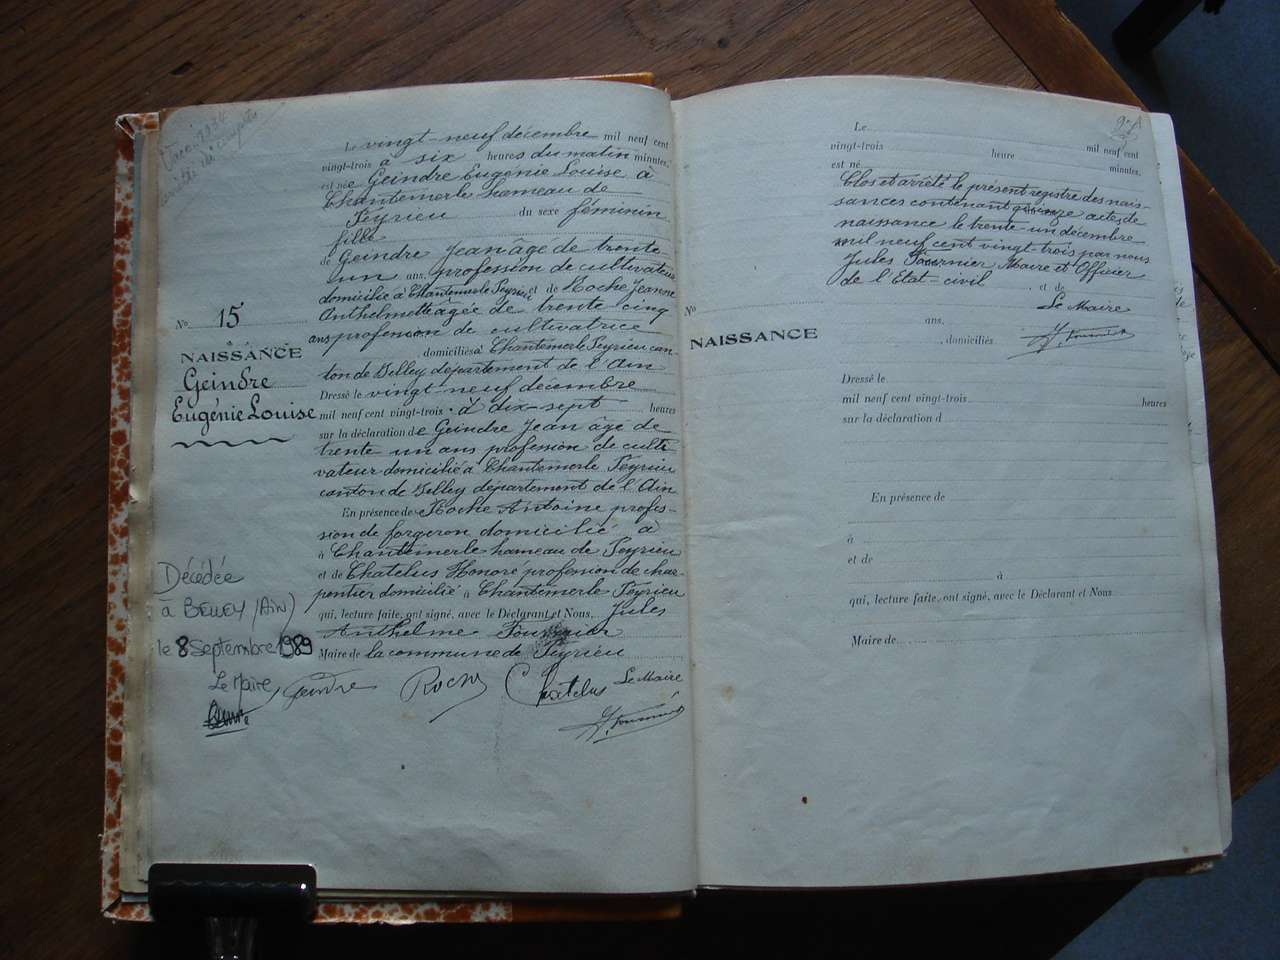 No 15
NAISSANCE
Geindre
Eugénie Louise
Décédée
à BELLEY (Ain)
le 8 Septembre 1989
Le Maire
Le vingt neuf décembre mil neuf cent
vingt-trois à six heures du matin minutes.
est née Geindre Eugénie Louise à
Chantemerle hameau de
Peyrieu du sexe féminin
fille
de Geindre Jean âgé de trente
un ans, profession de cultivateur
domicilié à Chantemerle Peyrieu et de Roche Jeanne
Anthelmette âgée de trente cinq
ans profession de cultivatrice
domiciliés à Chantemerle Peyrieu can-
ton de Belley département de l'Ain
Dressé le vingt neuf décembre
mil neuf cent vingt-trois à dix-sept heures
sur la déclaration de Geindre Jean âgé de
trente un ans profession de culti
vateur domicilié à Chantemerle Peyrieu
canton de Belley département de l'Ain
En présence de Roche Antoine profes-
sion de forgeron domicilié à
à Chantemerle hameau de Peyrieu
et de Chatelus Honoré profession de char
pentier domicilié à Chantemerle Peyrieu
qui, lecture faite, ont signé, avec le Déclarant et Nous, Jules
Anthelme Fournier
Maire de la commune de Peyrieu
Geindre Roche Chatelus Le Maire
J. Fournier
Le mil neuf cent
vingt-trois heure minutes.
est né
Clos et arrêté le présent registre des nais-
sances contenant quinze actes de
naissance le trente-un décembre
mil neuf cent vingt-trois par nous
Jules Fournier Maire et Officier
de l'Etat-civil et de
Le Maire
No
ans,
NAISSANCE
, domiciliés
J. Fournier
Dressé le
mil neuf cent vingt-trois heures
sur la déclaration d
En présence de
à
et de
à
qui, lecture faite, ont signé, avec le Déclarant et Nous
Maire de